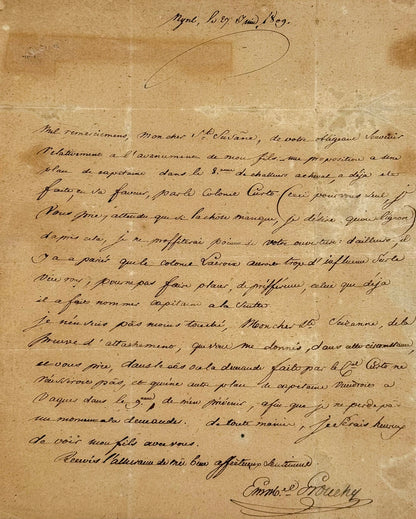 le 27 1809.
Mil remerciemens, mon cher Ste Suzanne, de votre obligeant Souvenir
relativement a l'avancement de mon fils. une proposition a une
place de capitaine dans le 8eme de chasseurs a cheval, a déja été
faite, en sa faveur, par le Colonel Curto (ceci pour vous seul, je
vous prie) attendu que si la chose manque, je désire qu'on l'ignore)
d'après cela, je ne profiterai point de votre ouverture: d'ailleurs, il
y a a parier que le colonel Lacroix auroit trop d'influence sur le
vice roy, pour ne pas faire placer, de préférence, celui que déja
il a fait nommer capitaine a la suite.
je n'en suis pas moins touché, Mon cher Ste Suzanne, de la
preuve d'attachement, que vous me donnés, dans cette circonstance
et vous prie, dans le cas où la demande faite par le Cel Curto ne
réussiroit pas, et qu'une autre place de capitaine viendroit a
vaquer dans le 9eme, de m'en prévenir, afin que je ne perde pas
un moment a la demander. de toute manière, je serais heureux
de voir mon fils avec vous.
Recevés l'assurance de mes bien affectueux Sentimens
Emmel Grouchy